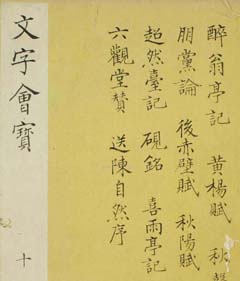 醉翁亭記 黃楊賦 秋
朋黨論 後赤壁賦 秋陽賦
超然臺記 硯銘 喜雨亭記
六觀堂贊 送陳自然序
文字會寶 十